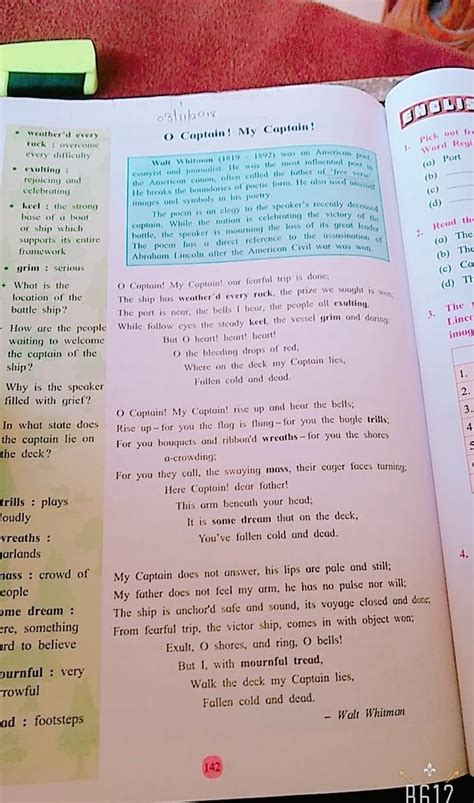 03/11/2018
O Captain! My Captain!
Walt Whitman (1819 - 1892) was an American poet,
essayist and journalist. He was the most influential poet in
the American canon, often called the father of 'free verse'.
He breaks the boundaries of poetic form. He also used unusual
images and symbols in his poetry.
The poem is an elegy to the speaker's recently deceased
captain. While the nation is celebrating the victory of the
battle, the speaker is mourning the loss of its great leader.
The poem has a direct reference to the assasination of
Abraham Lincoln after the American Civil war was won.
• weather'd every
rack : overcome
every difficulty
• exulting :
rejoicing and
celebrating
• keel : the strong
base of a boat
or ship which
supports its entire
framework
• grim : serious
What is the
location of the
battle ship?
How are the people
waiting to welcome
the captain of the
ship?
Why is the speaker
filled with grief?
In what state does
the captain lie on
the deck?
trills : plays
loudly
wreaths :
garlands
mass : crowd of
people
some dream :
ere, something
ard to believe
ournful : very
rrowful
ad : footsteps
O Captain! My Captain! our fearful trip is done;
The ship has weather'd every rack, the prize we sought is won,
The port is near, the bells I hear, the people all exulting,
While follow eyes the steady keel, the vessel grim and daring:
But O heart! heart! heart!
O the bleeding drops of red,
Where on the deck my Captain lies,
Fallen cold and dead.
O Captain! My Captain! rise up and hear the bells;
Rise up-for you the flag is flung-for you the bugle trills;
For you bouquets and ribbon'd wreaths-for you the shores
a-crowding;
For you they call, the swaying mass, their eager faces turning;
Here Captain! dear father!
This arm beneath your head;
It is some dream that on the deck,
You've fallen cold and dead.
My Captain does not answer, his lips are pale and still;
My father does not feel my arm, he has no pulse nor will;
The ship is anchor'd safe and sound, its voyage closed and done;
From fearful trip, the victor ship, comes in with object won;
Exult, O shores, and ring, O bells!
But I, with mournful tread,
Walk the deck my Captain lies,
Fallen cold and dead.
- Walt Whitman
142
ENGLIS
1. Pick out fr
Word Regi
(a) Port
(b)
(c)
(d)
2. Read the
(a) The
(b) The
(c) Ca
(d) Th
3. The
Linco
imag
1.
2.
3.
4
4.
B612